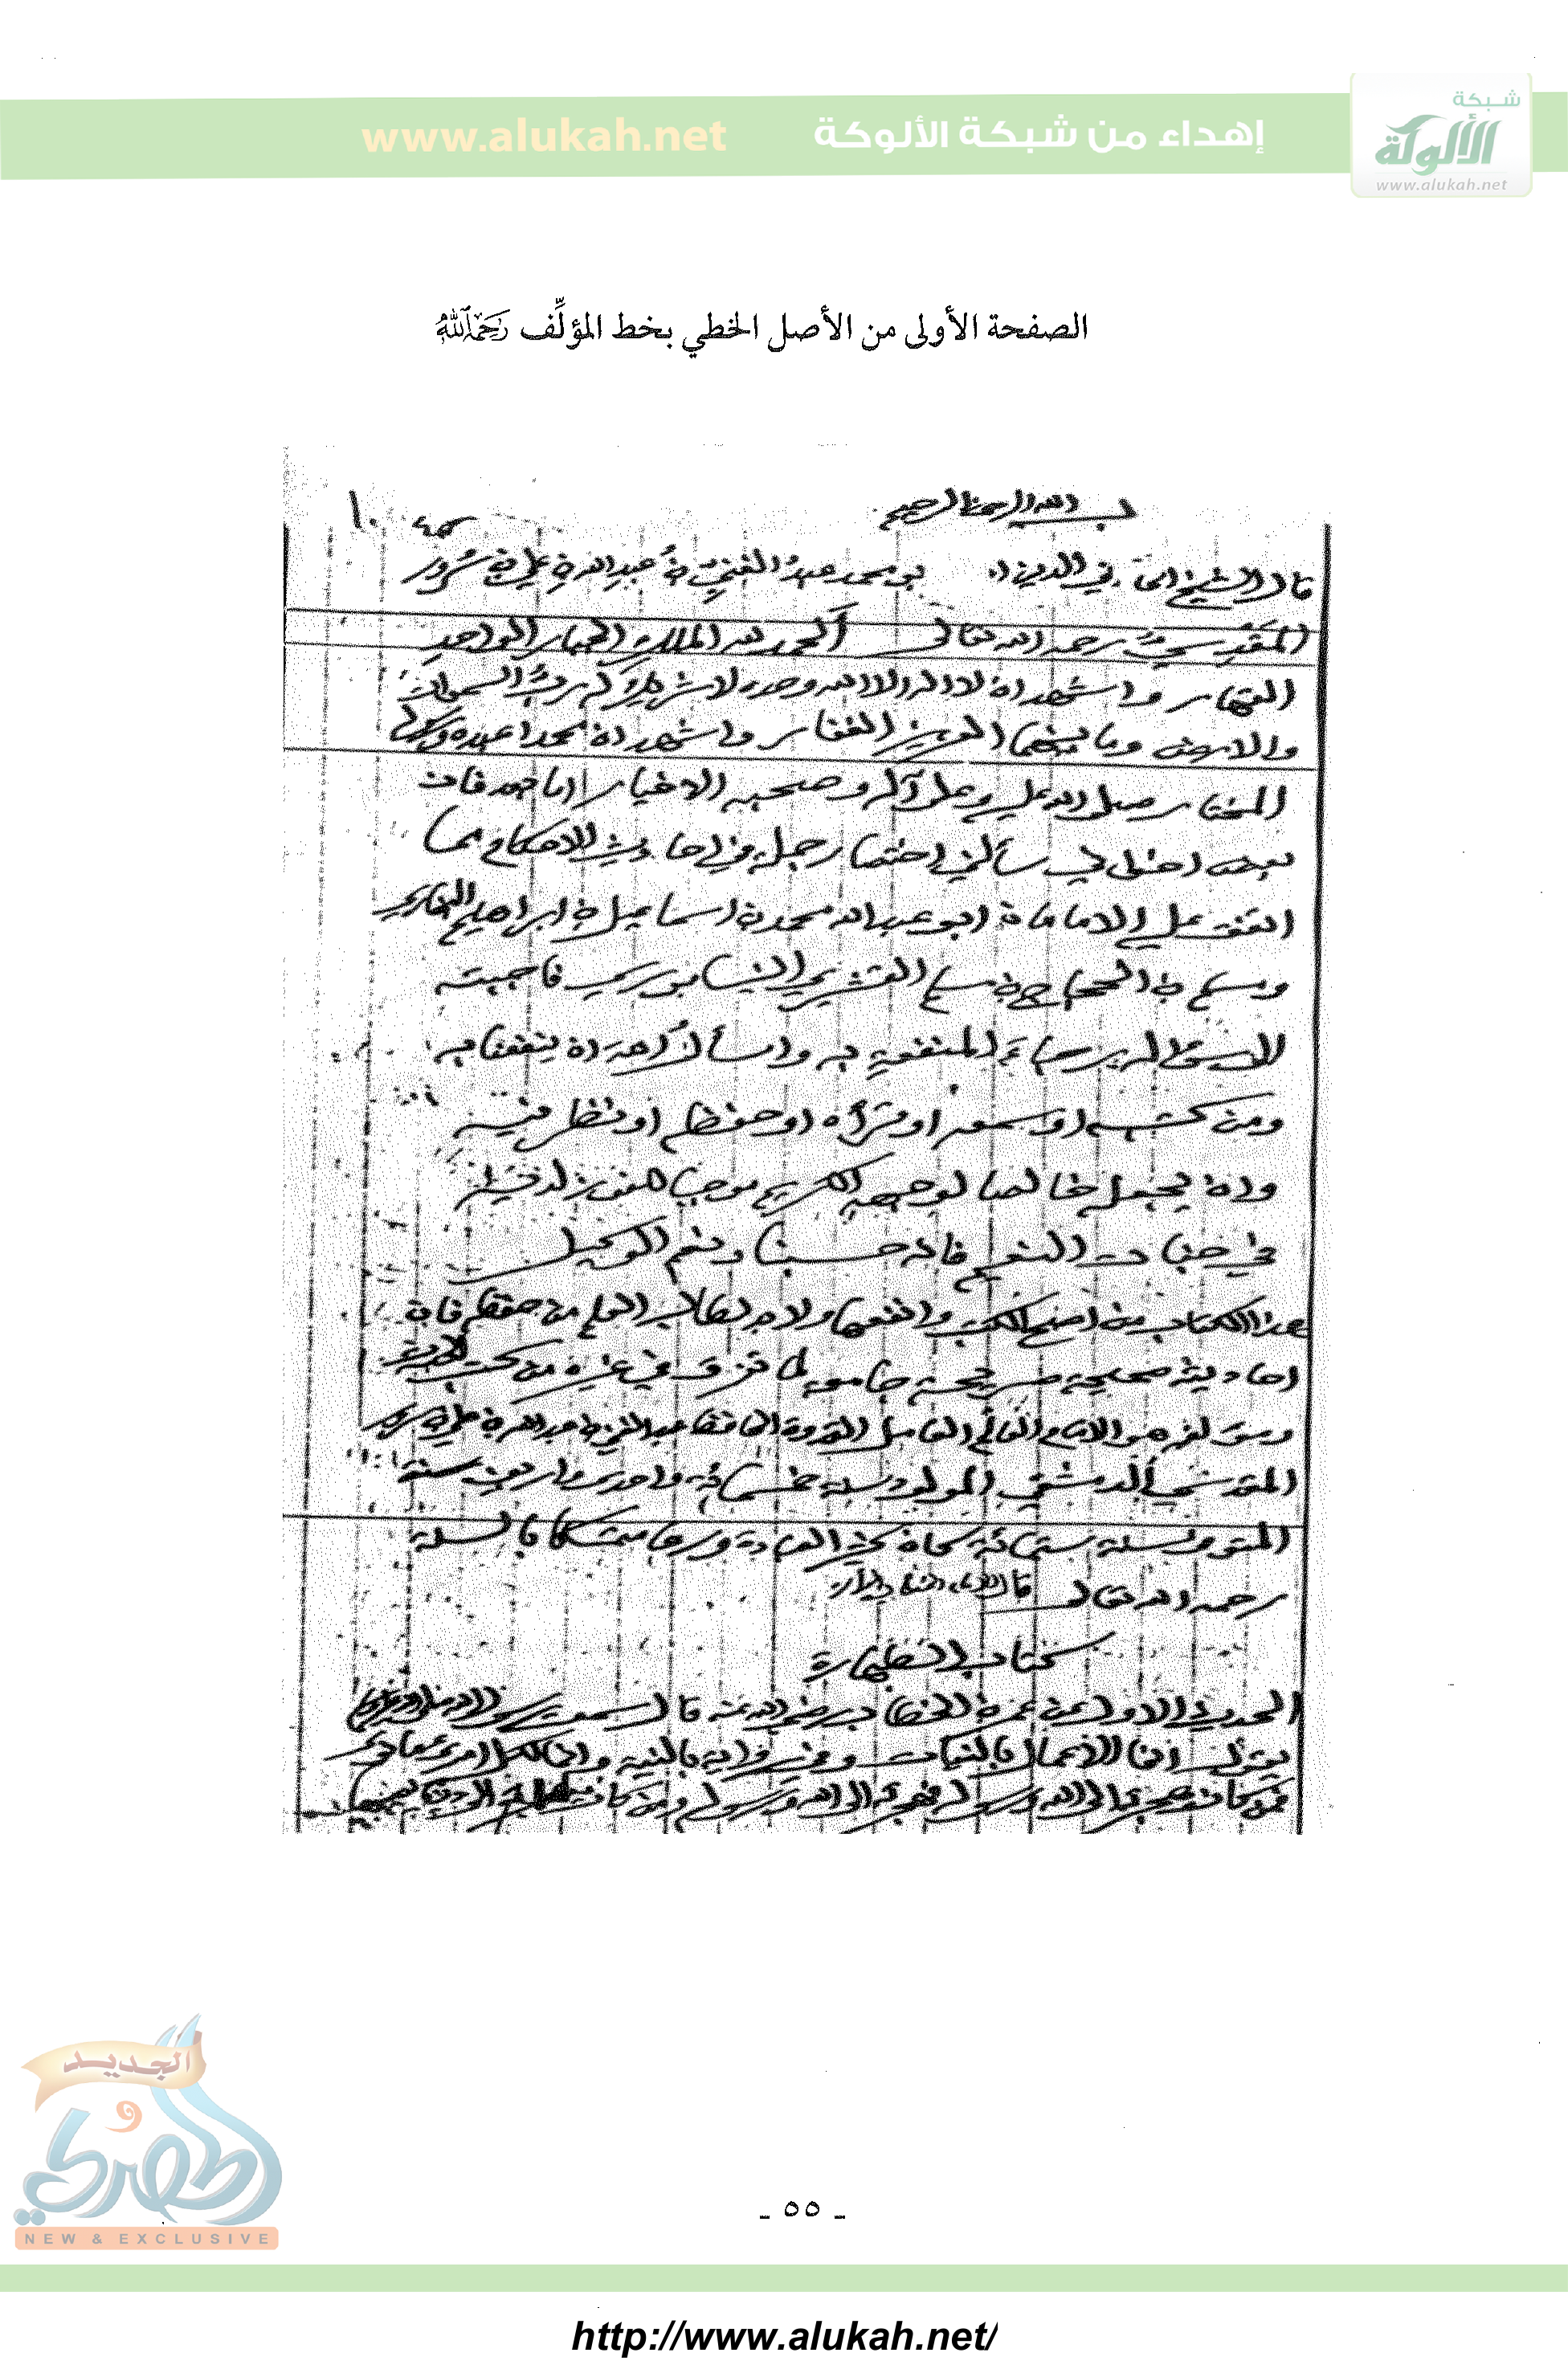 شبكة
الألوكة
www.alukah.net
إهداء من شبكة الألوكة www.alukah.net
الصفحة الأولى من الأصل الخطي بخط المؤلِّف رَحِمَهُ ٱللَّهُ
بسم الله الرحمن الرحيم
قال الشيخ تقي الدين أبو محمد عبدُ الغنيِّ بنُ عبد الله بن علي بن سُرُور
المقدسيُّ رحمه الله تعالى الحمد لله الملك الجبار الواحدِ
القهار واشهد ان لا اله الا الله وحده لا شريك له ربُّ السموات
والارض وما بينهما العزيز الغفار واشهد ان محمدا عبده ورسوله
المختار صلى الله عليه وعلى آله وصحبه الاخيار اما بعد فان
بعض اخواني سألني اختصار جملة في احاديث الاحكام مما
اتفق عليه الامامان ابو عبد الله محمد بن اسماعيل بن ابراهيم البخاري
ومسلم بن الحجاج بن مسلم القشيري النيسابوري فاجبته
الى سؤاله رجاءَ المنفعة به واسألُ الله ان ينفعنا به
ومن كتبه او سمعه او قرأه او حفظه او نظر فيه
وان يجعله خالصا لوجهه الكريم موجبا للفوز لديه
في جنات النعيم فانه حسبنا ونعم الوكيل
هذا الكتاب من اصح الكتب وانفعها ولا بد لطالب العلم من حفظه فانه
احاديث صحيحة صريحة جامعة لما تفرق في غيره من كتب الحديث
ومؤلفه هو الامام العالم العامل القدوة الحافظ عبد الغني بن عبد الله بن علي بن سرور
المقدسي الدمشقي المولود سنة خمسمائة واحدى واربعين سنة
المتوفى سنة ستمائة كان كثير العبادة ورعا متمسكا بالسنة
رحمه الله تعالى
كتاب الطهارة
الحديث الاول عن عمر بن الخطاب رضي الله عنه قال سمعت رسول الله صلى الله عليه وسلم
يقول انما الاعمال بالنيات وفي رواية بالنية وانما لكل امرئ ما نوى
فمن كانت هجرته الى الله ورسوله فهجرته الى الله ورسوله ومن كانت هجرته الى دنيا يصيبها
الجديد
و
الحصري
NEW & EXCLUSIVE
ـ ٥٥ ـ
http://www.alukah.net/